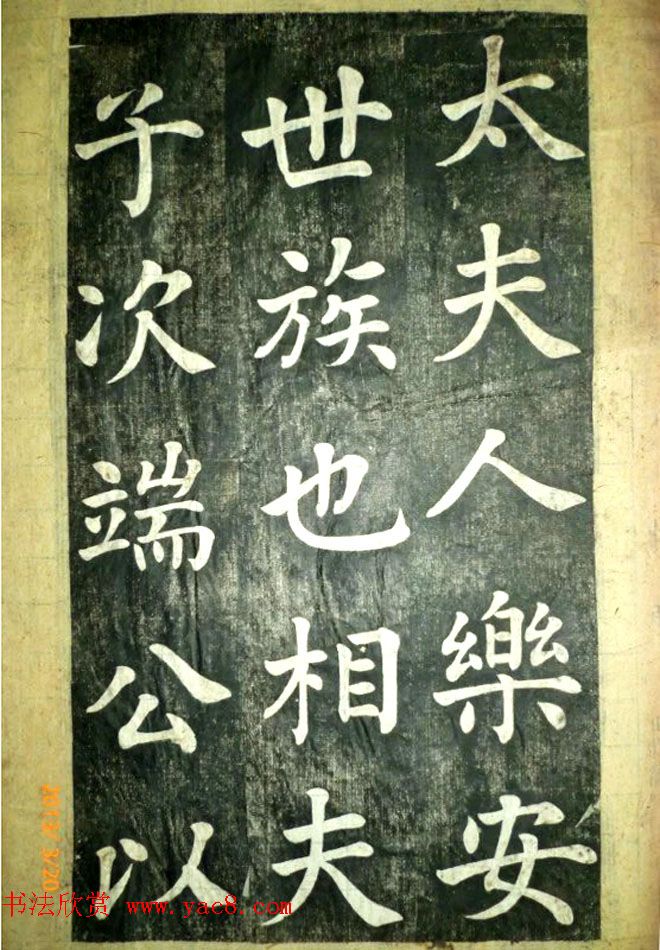 太夫人樂安
世族也相夫
子次端公以
2013/3/20
书法欣赏 www.yac8.com